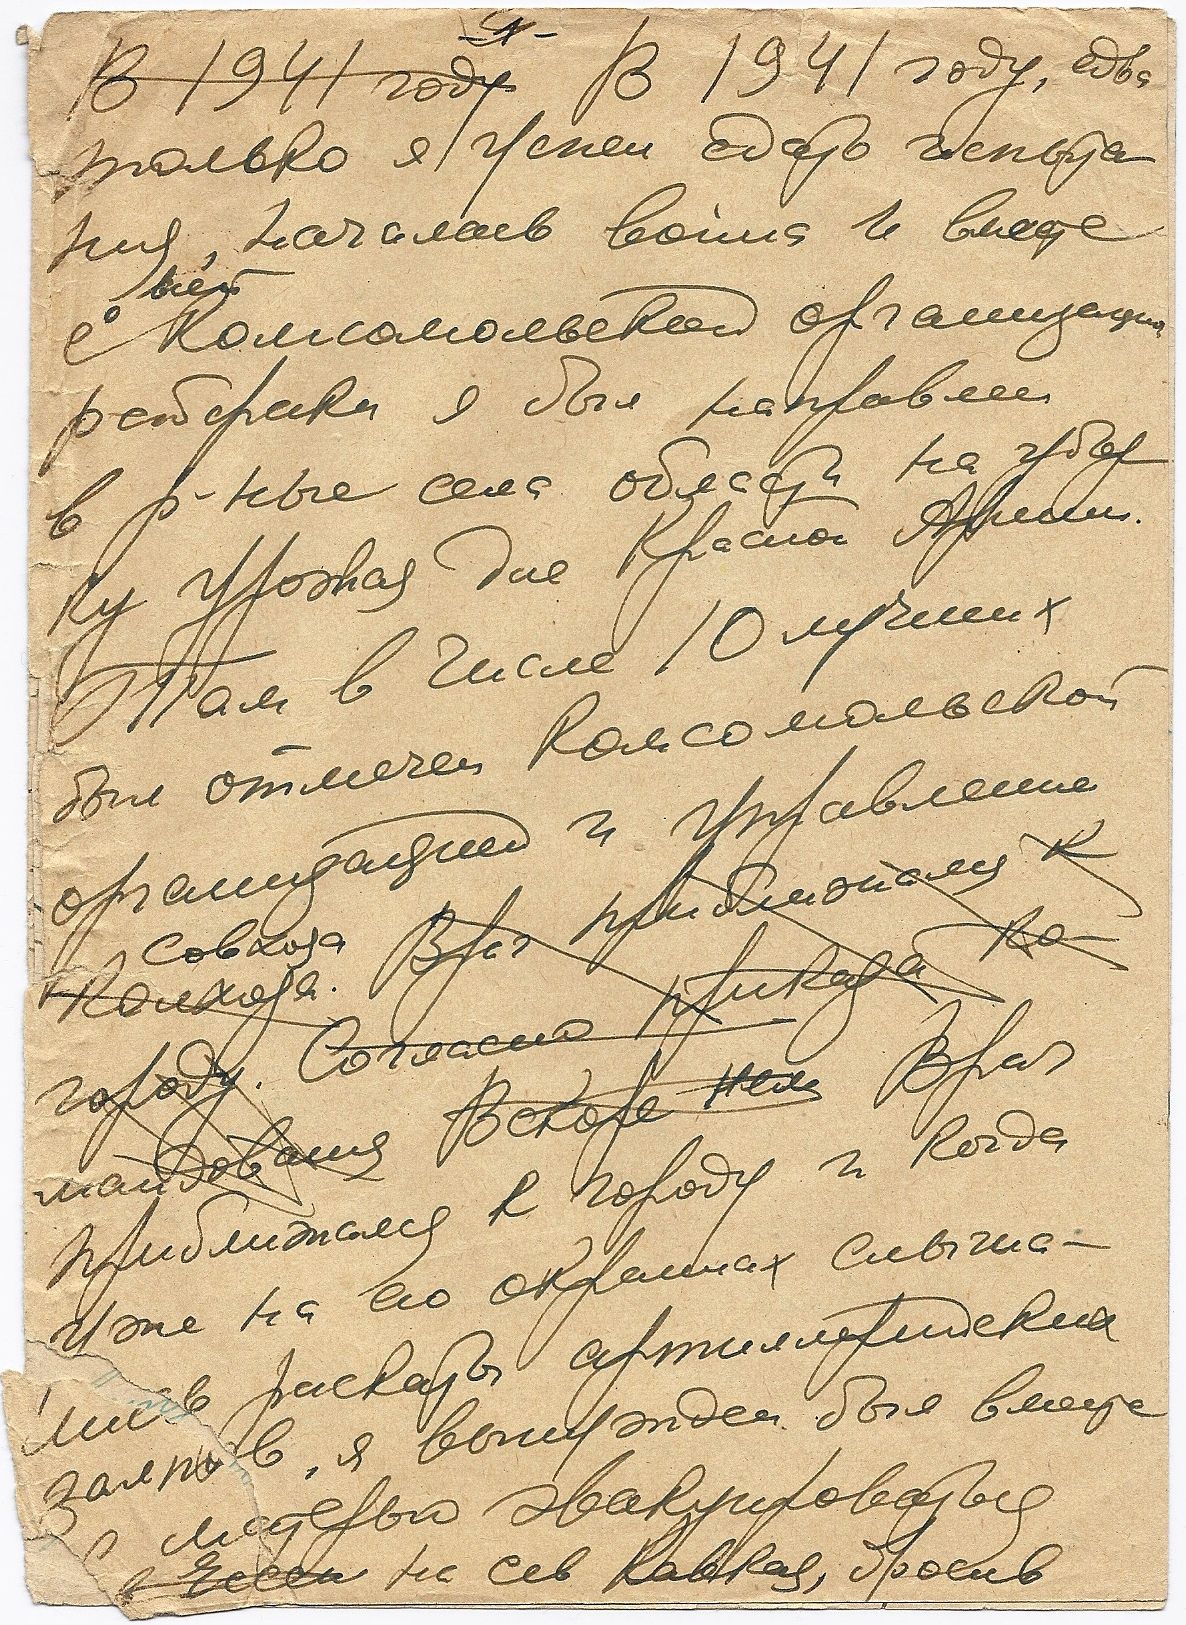 -4-
В 1941 году В 1941 году, едва
только я успел сдать испыта-
ния, началась война и вместе
со всей комсомольской организацией
я был направлен
в р-ные села области на убор
ку урожая для Красной Армии.
Там в числе 10 лучших
был отмечен комсомольской
организацией и управлением
совхоза
колхоза. Враг приближался к
городу. Согласно приказа ко-
мандования Вскоре нем Враг
приближался к городу и когда
уже на его окраинах слыша-
лись раскаты артиллерийских
залпов, я вынужден был вместе
с матерью эвакуироваться
в Ессен на сев Кавказ, бросив